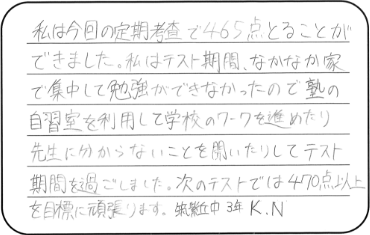 私は今回の定期考査で465点とることが
できました。私はテスト期間、なかなか家
で集中して勉強ができなかったので塾の
自習室を利用して学校のワークを進めたり
先生に分からないことを聞いたりしてテスト
期間を過ごしました。次のテストでは470点以上
を目標に頑張ります。筑紫丘中3年 K.N